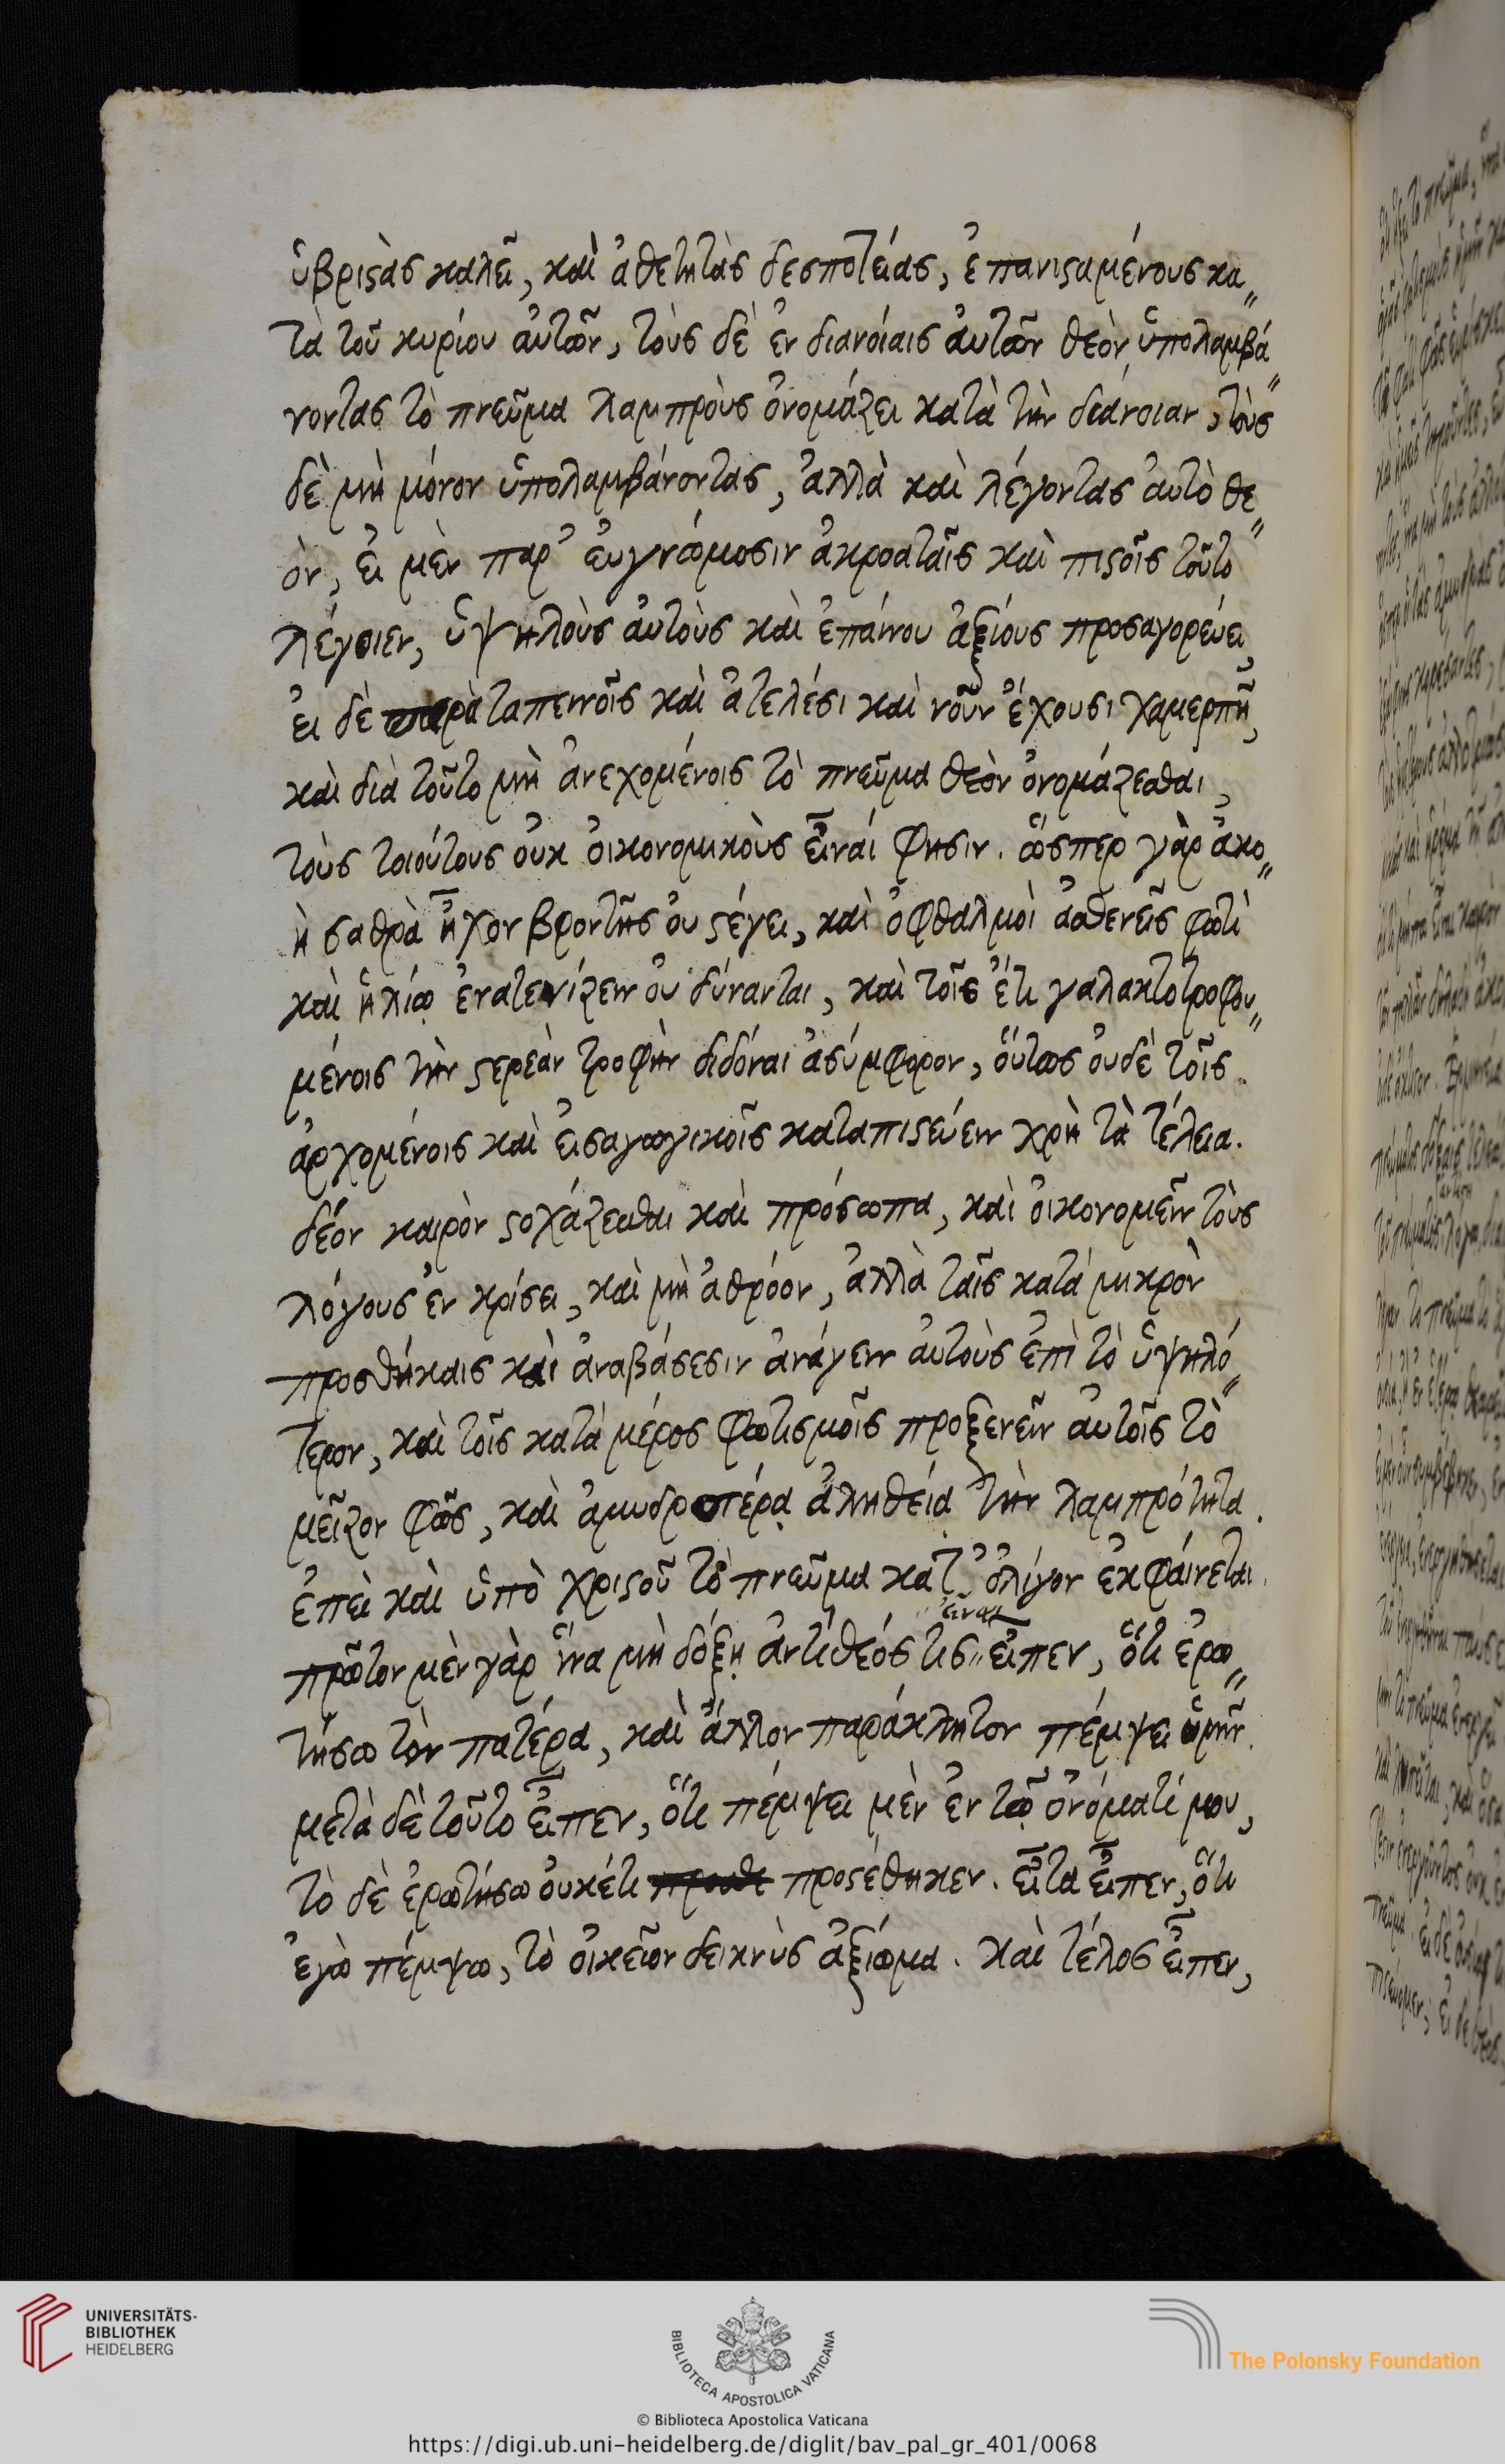 ὑβριϛὰς καλεῖ, καὶ ἀθετητὰς δεσποτείας, ἐπανιϛαμένους κα〃
τὰ τοῦ κυρίου αὐτῶν, τοὺς δὲ ἐν διανοίαις αὐτῶν θεὸν ὑπολαμβά〃
νοντας τὸ πνεῦμα λαμπροὺς ὀνομάζει κατὰ τὴν διάνοιαν, τοὺς
δὲ μὴ μόνον ὑπολαμβάνοντας, ἀλλὰ καὶ λέγοντας αὐτὸ θε〃
όν, εἰ μὲν παρ' εὐγνώμοσιν ἀκροαταῖς καὶ πιϛοῖς τοῦτο
λέγοιεν, ὑψηλοὺς αὐτοὺς καὶ ἐπαίνου ἀξίους προσαγορεύει,
εἰ δὲ παρὰ ταπεινοῖς καὶ ἀτελέσι καὶ νοῦν ἔχουσι χαμερπῆ,
καὶ διὰ τοῦτο μὴ ἀνεχομένοις τὸ πνεῦμα θεὸν ὀνομάζεσθαι,
τοὺς τοιούτους οὐκ οἰκονομικοὺς εἶναί φησιν. ὥσπερ γὰρ ἀκο〃
ὴ σαθρὰ ἦχον βροντῆς οὐ ϛέγει, καὶ ὀφθαλμοὶ ἀσθενεῖς φωτὶ
καὶ ἡλίῳ ἐνατενίζειν οὐ δύνανται, καὶ τοῖς ἔτι γαλακτοτροφου〃
μένοις τὴν ϛερεὰν τροφὴν διδόναι ἀσύμφορον, οὕτως οὐδὲ τοῖς
ἀρχομένοις καὶ εἰσαγωγικοῖς καταπιϛεύειν χρὴ τὰ τέλεια.
δέον καιρὸν ϛοχάζεσθαι καὶ πρόσωπα, καὶ οἰκονομεῖν τοὺς
λόγους ἐν κρίσει, καὶ μὴ ἀθρόον, ἀλλὰ ταῖς κατὰ μικρὸν
προσθήκαις καὶ ἀναβάσεσιν ἀνάγειν αὐτοὺς ἐπὶ τὸ ὑψηλό〃
τερον, καὶ τοῖς κατὰ μέρος φωτισμοῖς προξενεῖν αὐτοῖς τὸ
μεῖζον φῶς, καὶ ἀμυδροτέρᾳ ἀληθείᾳ τὴν λαμπρότητα.
ἐπεὶ καὶ ὑπὸ χριϛοῦ τὸ πνεῦμα κατ' ὀλίγον ἐκφαίνεται.
εἶναι
πρῶτον μὲν γὰρ ἵνα μὴ δόξῃ ἀντίθεός τις〃 εἶπεν, ὅτι ἐρω〃
τήσω τὸν πατέρα, καὶ ἄλλον παράκλητον πέμψει ὑμῖν.
μετὰ δὲ τοῦτο εἶπεν, ὅτι πέμψει μὲν ἐν τῷ ὀνόματί μου,
τὸ δὲ ἐρωτήσω οὐκέτι προσέθηκεν. εἶτα εἶπεν, ὅτι
ἐγὼ πέμψω, τὸ οἰκεῖον δεικνὺς ἀξίωμα. καὶ τέλος εἶπεν,
UNIVERSITÄTS-
BIBLIOTHEK
HEIDELBERG
BIBLIOTECA APOSTOLICA VATICANA
The Polonsky Foundation
© Biblioteca Apostolica Vaticana
https://digi.ub.uni-heidelberg.de/diglit/bav_pal_gr_401/0068